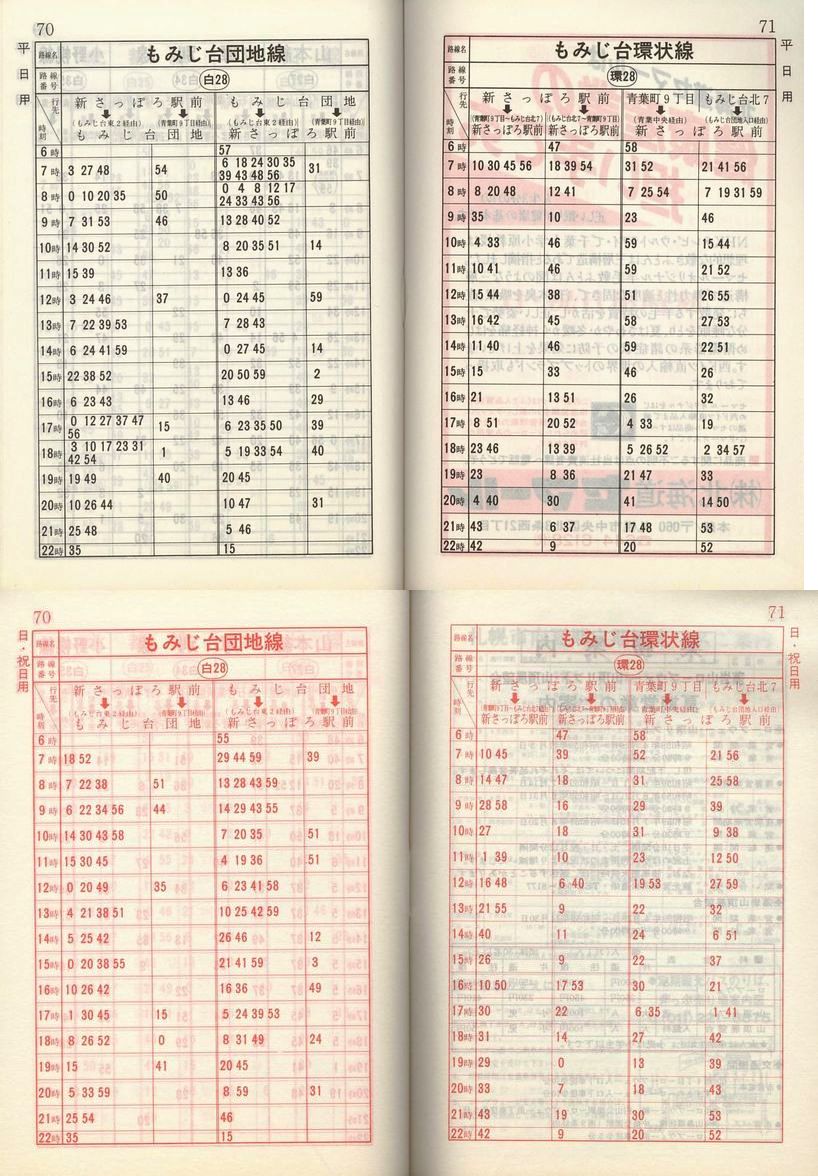 70
平日用
路線名 もみじ台団地線
路線番号 白28
行先 新さっぽろ駅前 もみじ台団地
(もみじ台東2経由) (青葉町9丁目経由) (もみじ台東2経由) (青葉町9丁目経由)
時刻 もみじ台団地 新さっぽろ駅前
6時 57
7時 3 27 48 54 6 18 24 30 35 31
39 43 48 56
8時 0 10 20 35 50 0 4 8 12 17
24 33 43 56
9時 7 31 53 46 13 28 40 52
10時 14 30 52 8 20 35 51 14
11時 15 39 13 36
12時 3 24 46 37 0 24 45 59
13時 7 22 39 53 7 28 43
14時 6 24 41 59 0 27 45 14
15時 22 38 52 20 50 59 2
16時 6 23 43 13 46 29
17時 0 12 27 37 47 15 6 23 35 50 39
56
18時 3 10 17 23 31 1 5 19 33 54 40
42 54
19時 19 49 40 20 45
20時 10 26 44 10 47 31
21時 25 48 5 46
22時 35 15
71
平日用
路線名 もみじ台環状線
路線番号 環28
行先 新さっぽろ駅前 青葉町9丁目 もみじ台北7
(青葉町9丁目~もみじ台北7) (もみじ台北7~青葉町9丁目) (青葉中央経由) (もみじ台団地入口経由)
時刻 新さっぽろ駅前 新さっぽろ駅前 新さっぽろ駅前
6時 47 58
7時 10 30 45 56 18 39 54 31 52 21 41 56
8時 8 20 48 12 41 7 25 54 7 19 31 59
9時 35 10 23 46
10時 4 33 46 59 15 44
11時 10 41 46 59 21 52
12時 15 44 38 51 26 55
13時 16 42 45 58 27 53
14時 11 40 46 59 22 51
15時 15 33 46 26
16時 21 13 51 26 32
17時 8 51 20 52 4 33 19
18時 23 46 13 39 5 26 52 2 34 57
19時 23 8 36 21 47 33
20時 4 40 30 41 14 50
21時 43 6 37 17 48 53
22時 42 9 20 52
70
日・祝日用
路線名 もみじ台団地線
路線番号 白28
行先 新さっぽろ駅前 もみじ台団地
(もみじ台東2経由) (青葉町9丁目経由) (もみじ台東2経由) (青葉町9丁目経由)
時刻 もみじ台団地 新さっぽろ駅前
6時 55
7時 18 52 29 44 59 39
8時 7 22 38 51 13 28 43 59
9時 6 22 34 56 44 14 29 43 55
10時 14 30 43 58 7 20 35 51
11時 15 30 45 4 19 36 51
12時 0 20 49 35 6 23 41 58
13時 4 21 38 51 10 25 42 59
14時 5 25 42 26 46 12
15時 0 20 38 55 21 41 59 3
16時 10 26 42 16 36 49
17時 1 30 45 15 5 24 39 53
18時 8 26 52 0 8 31 49 24
19時 15 41 20 45
20時 5 33 59 8 59 31
21時 25 54 46
22時 35 15
71
日・祝日用
路線名 もみじ台環状線
路線番号 環28
行先 新さっぽろ駅前 青葉町9丁目 もみじ台北7
(青葉町9丁目~もみじ台北7) (もみじ台北7~青葉町9丁目) (青葉町中央経由) (もみじ台団地入口経由)
時刻 新さっぽろ駅前 新さっぽろ駅前 新さっぽろ駅前
6時 47 58
7時 10 45 39 52 21 56
8時 14 47 18 31 25 58
9時 28 58 16 29 39
10時 27 18 31 9 38
11時 1 39 10 23 12 50
12時 16 48 6 40 19 53 27 59
13時 21 55 9 22 32
14時 40 11 24 6 51
15時 26 9 22 37
16時 10 50 17 53 30 21
17時 30 22 6 35 1 41
18時 31 14 27 42
19時 29 0 13 39
20時 33 7 18 43
21時 43 19 30 53
22時 42 9 20 52